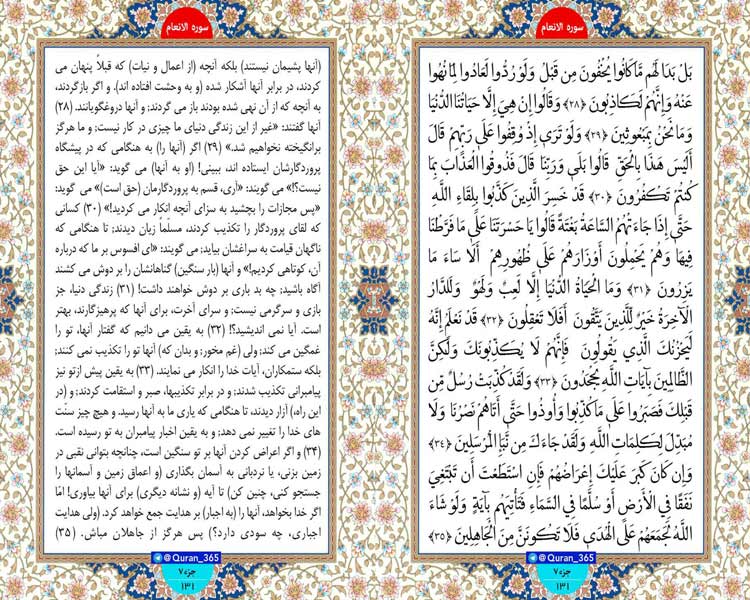 سوره الانعام
بَلْ بَدَا لَهُم مَّا كَانُوا يُخْفُونَ مِن قَبْلُ وَلَوْ رُدُّوا لَعَادُوا لِمَا نُهُوا
عَنْهُ وَإِنَّهُمْ لَكَاذِبُونَ ﴿۲۸﴾ وَقَالُوا إِنْ هِيَ إِلَّا حَيَاتُنَا الدُّنْيَا
وَمَا نَحْنُ بِمَبْعُوثِينَ ﴿۲۹﴾ وَلَوْ تَرَى إِذْ وُقِفُوا عَلَى رَبِّهِمْ قَالَ
أَلَيْسَ هَذَا بِالْحَقِّ قَالُوا بَلَى وَرَبِّنَا قَالَ فَذُوقُوا الْعَذَابَ بِمَا
كُنتُمْ تَكْفُرُونَ ﴿۳۰﴾ قَدْ خَسِرَ الَّذِينَ كَذَّبُوا بِلِقَاءِ اللَّهِ
حَتَّى إِذَا جَاءَتْهُمُ السَّاعَةُ بَغْتَةً قَالُوا يَا حَسْرَتَنَا عَلَى مَا فَرَّطْنَا
فِيهَا وَهُمْ يَحْمِلُونَ أَوْزَارَهُمْ عَلَى ظُهُورِهِمْ أَلَا سَاءَ مَا
يَزِرُونَ ﴿۳۱﴾ وَمَا الْحَيَاةُ الدُّنْيَا إِلَّا لَعِبٌ وَلَهْوٌ وَلَلدَّارُ
الْآخِرَةُ خَيْرٌ لِّلَّذِينَ يَتَّقُونَ أَفَلَا تَعْقِلُونَ ﴿۳۲﴾ قَدْ نَعْلَمُ إِنَّهُ
لَيَحْزُنُكَ الَّذِي يَقُولُونَ فَإِنَّهُمْ لَا يُكَذِّبُونَكَ وَلَكِنَّ
الظَّالِمِينَ بِآيَاتِ اللَّهِ يَجْحَدُونَ ﴿۳۳﴾ وَلَقَدْ كُذِّبَتْ رُسُلٌ مِّن
قَبْلِكَ فَصَبَرُوا عَلَى مَا كُذِّبُوا وَأُوذُوا حَتَّى أَتَاهُمْ نَصْرُنَا وَلَا
مُبَدِّلَ لِكَلِمَاتِ اللَّهِ وَلَقَدْ جَاءَكَ مِن نَّبَإِ الْمُرْسَلِينَ ﴿۳۴﴾
وَإِن كَانَ كَبُرَ عَلَيْكَ إِعْرَاضُهُمْ فَإِنِ اسْتَطَعْتَ أَن تَبْتَغِيَ
نَفَقًا فِي الْأَرْضِ أَوْ سُلَّمًا فِي السَّمَاءِ فَتَأْتِيَهُم بِآيَةٍ وَلَوْ شَاءَ
اللَّهُ لَجَمَعَهُمْ عَلَى الْهُدَى فَلَا تَكُونَنَّ مِنَ الْجَاهِلِينَ ﴿۳۵﴾
@Quran_365
جزء۷
۱۳۱
سوره الانعام
(آنها پشیمان نیستند) بلکه آنچه (از اعمال و نیات) که قبلاً پنهان می
کردند، در برابر آنها آشکار شده (و به وحشت افتاده اند). و اگر بازگردند،
به آنچه که از آن نهی شده بودند باز می گردند؛ و آنها دروغگویانند. (۲۸)
آنها گفتند: «غیر از این زندگی دنیای ما چیزی در کار نیست؛ و ما هرگز
برانگیخته نخواهیم شد.» (۲۹) اگر (آنها را) به هنگامی که در پیشگاه
پروردگارشان ایستاده اند، ببینی! (او به آنها) می گوید: «آیا این حق
نیست؟!» می گویند: «آری، قسم به پروردگارمان (حق است)» می گوید:
«پس مجازات را بچشید به سزای آنچه انکار می کردید!» (۳۰) کسانی
که لقای پروردگار را تکذیب کردند، مسلّماً زیان دیدند؛ تا هنگامی که
ناگهان قیامت به سراغشان بیاید؛ می گویند: «ای افسوس بر ما که درباره
آن، کوتاهی کردیم!» و آنها (بار سنگین) گناهانشان را بر دوش می کشند
آگاه باشید؛ چه بد باری بر دوش خواهند داشت! (۳۱) زندگی دنیا، جز
بازی و سرگرمی نیست؛ و سرای آخرت، برای آنها که پرهیزگارند، بهتر
است. آیا نمی اندیشید؟! (۳۲) به یقین می دانیم که گفتار آنها، تو را
غمگین می کند؛ ولی (غم مخور؛ و بدان که) آنها تو را تکذیب نمی کنند;
بلکه ستمکاران، آیات خدا را انکار می نمایند. (۳۳) به یقین پیش ازتو نیز
پیامبرانی تکذیب شدند؛ و در برابر تکذیبها، صبر و استقامت کردند؛ و (در
این راه،) آزار دیدند، تا هنگامی که یاری ما به آنها رسید. و هیچ چیز سنّت
های خدا را تغییر نمی دهد؛ و به یقین اخبار پیامبران به تو رسیده است.
(۳۴) و اگر اعراض کردن آنها بر تو سنگین است، چنانچه بتوانی نقبی در
زمین بزنی، یا نردبانی به آسمان بگذاری (و اعماق زمین و آسمانها را
جستجو کنی، چنین کن) تا آیه (و نشانه دیگری) برای آنها بیاوری! امّا
اگر خدا بخواهد، آنها را (به اجبار) بر هدایت جمع خواهد کرد. (ولی هدایت
اجباری، چه سودی دارد؟) پس هرگز از جاهلان مباش. (۳۵)
@Quran_365
جزء۷
۱۳۱